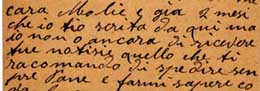 cara Molie e gia 2 mesi
che io tio scrita da qui ma
io non o ancora di ricevere
tue notisie quello che ti
racomando di spedire sen
pre Pane e fanmi sapere co